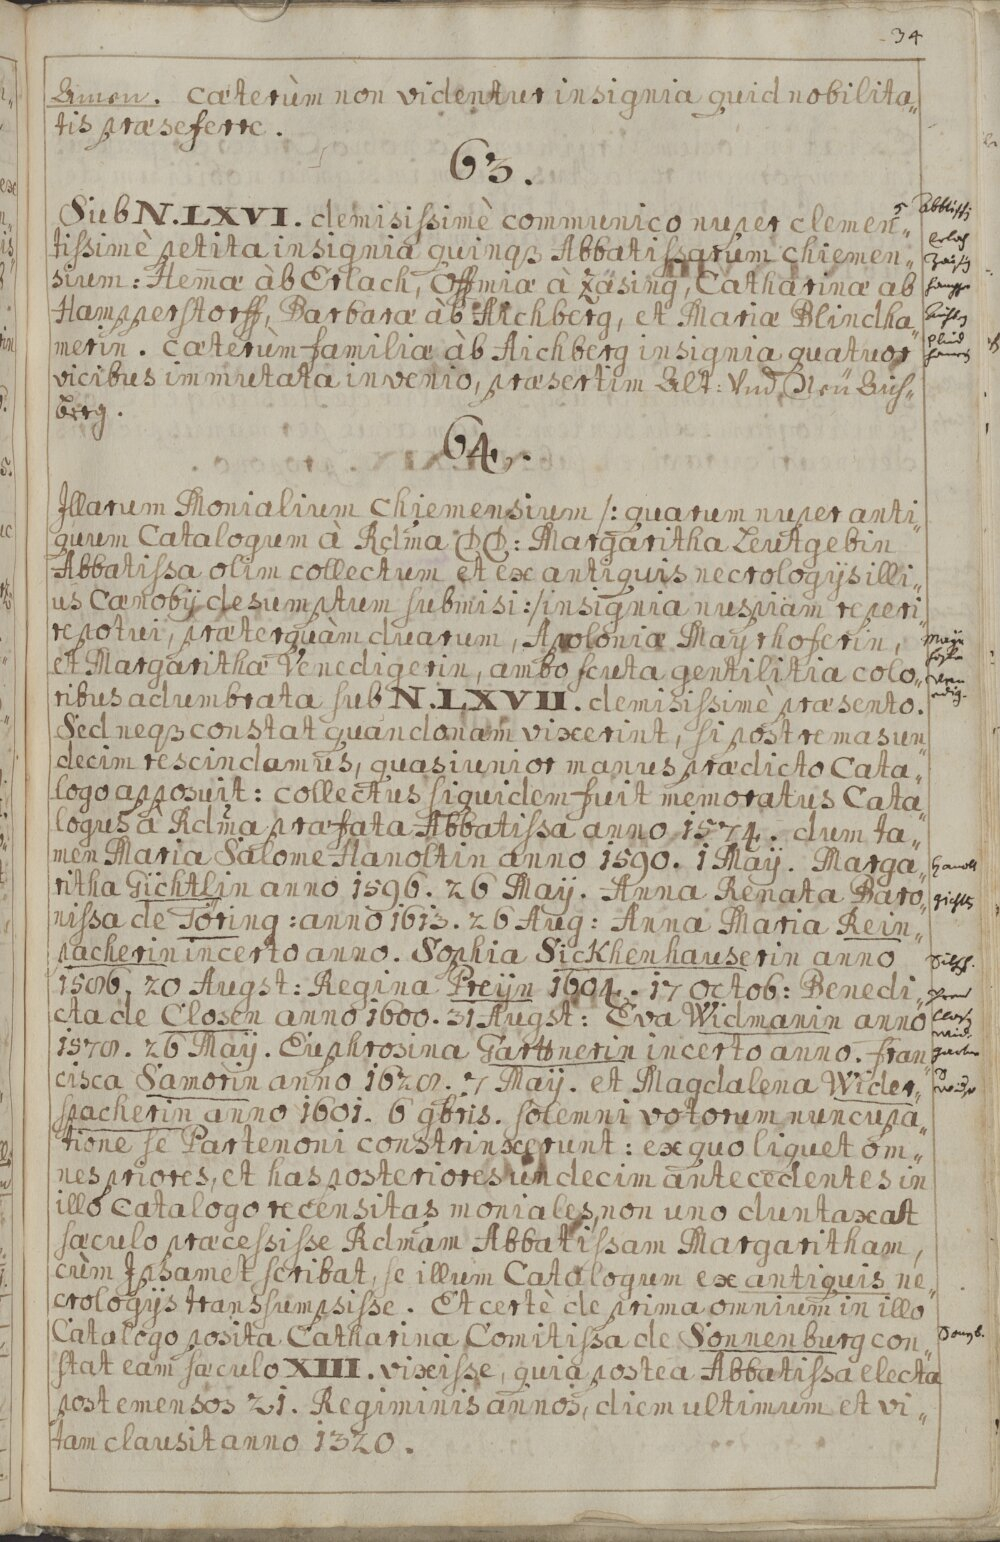 34
Amen. Cæterùm non videntur insignia quid nobilita„
tis præseferre.
63.
Sub N. LXVI. demisissimè communico nuper clemen„
tissimè petita insignia quinqꝫ Abbatissarum Chiemen„
sium: Hem̄æ àb Erlach, Offmiæ à Zäsing, Catharinæ ab
Hampperstorff, Barbaræ àb Aichberg, et Mariæ Blindha„
merin. Cæterùm familiæ àb Aichberg insignia quatuor
vicibus immutata invenio, præsertim Alt: Vnd Neü Aich„
berg.
64.
Illarum Monialium Chiemensium /: quarum nuper anti„
quum Catalogum à Rdm̄a DD: Margaritha Leütgebin
Abbatissa olim collectum et ex antiquis necrologijs illi„
us Cænobij desumptum submisi :/ insignia nuspiàm reperi„
re potui, præterquàm duarum, Apoloniæ Maÿrhoferin,
et Margarithæ Venedigerin, ambo scuta gentilitia colo„
ribus adumbrata sub N. LXVII. demisissimè præsento.
Sed neqꝫ constat quandonam vixerint, si postremas un„
decim rescindamus, quas iunior manus prædicto Cata„
logo apposuit: collectus siquidem fuit memoratus Cata„
logus à Rdm̄a præfata Abbatissa anno 1574. dum ta„
men Maria Salome Hanoltin anno 1590. 1 Maÿ. Marga„
ritha Gichtlin anno 1596. 26 Maÿ. Anna Renata Baro„
nissa de Töring: anno 1613. 26 Aug: Anna Maria Rein„
pacherin incerto anno. Sophia Sickhenhauserin anno
1586. 20 Augst: Regina Preÿn 1604. 17 Octob: Benedi„
cta de Closen anno 1600. 31 Augst: Eva Widmanin anno
1578. 26 Maÿ. Euphrosina Garttnerin incerto anno. Fran„
cisca Samorin anno 1628. 7 Maÿ. et Magdalena Wider„
spacherin anno 1601. 6 9bris. solemni votorum nuncupa„
tione se Partenoni constrinxerunt: ex quo liquet om„
nes priores, et has posteriores undecim antecedentes in
illo Catalogo recensitas moniales, non uno duntaxat
sæculo præcessisse Rdm̄am Abbatissam Margaritham,
cùm Ipsamet scribat, se illum Catalogum ex antiquis ne„
crologijs transsumpsisse. Et certè de prima omnium in illo
Catalogo posita Catharina Comitissa de Sonnenburg con„
stat eam sæculo XIII. vixisse, quia postea Abbatissa electa
post emensos 21. Regiminis annos, diem ultimum et vi„
tam clausit anno 1320.
Erlach